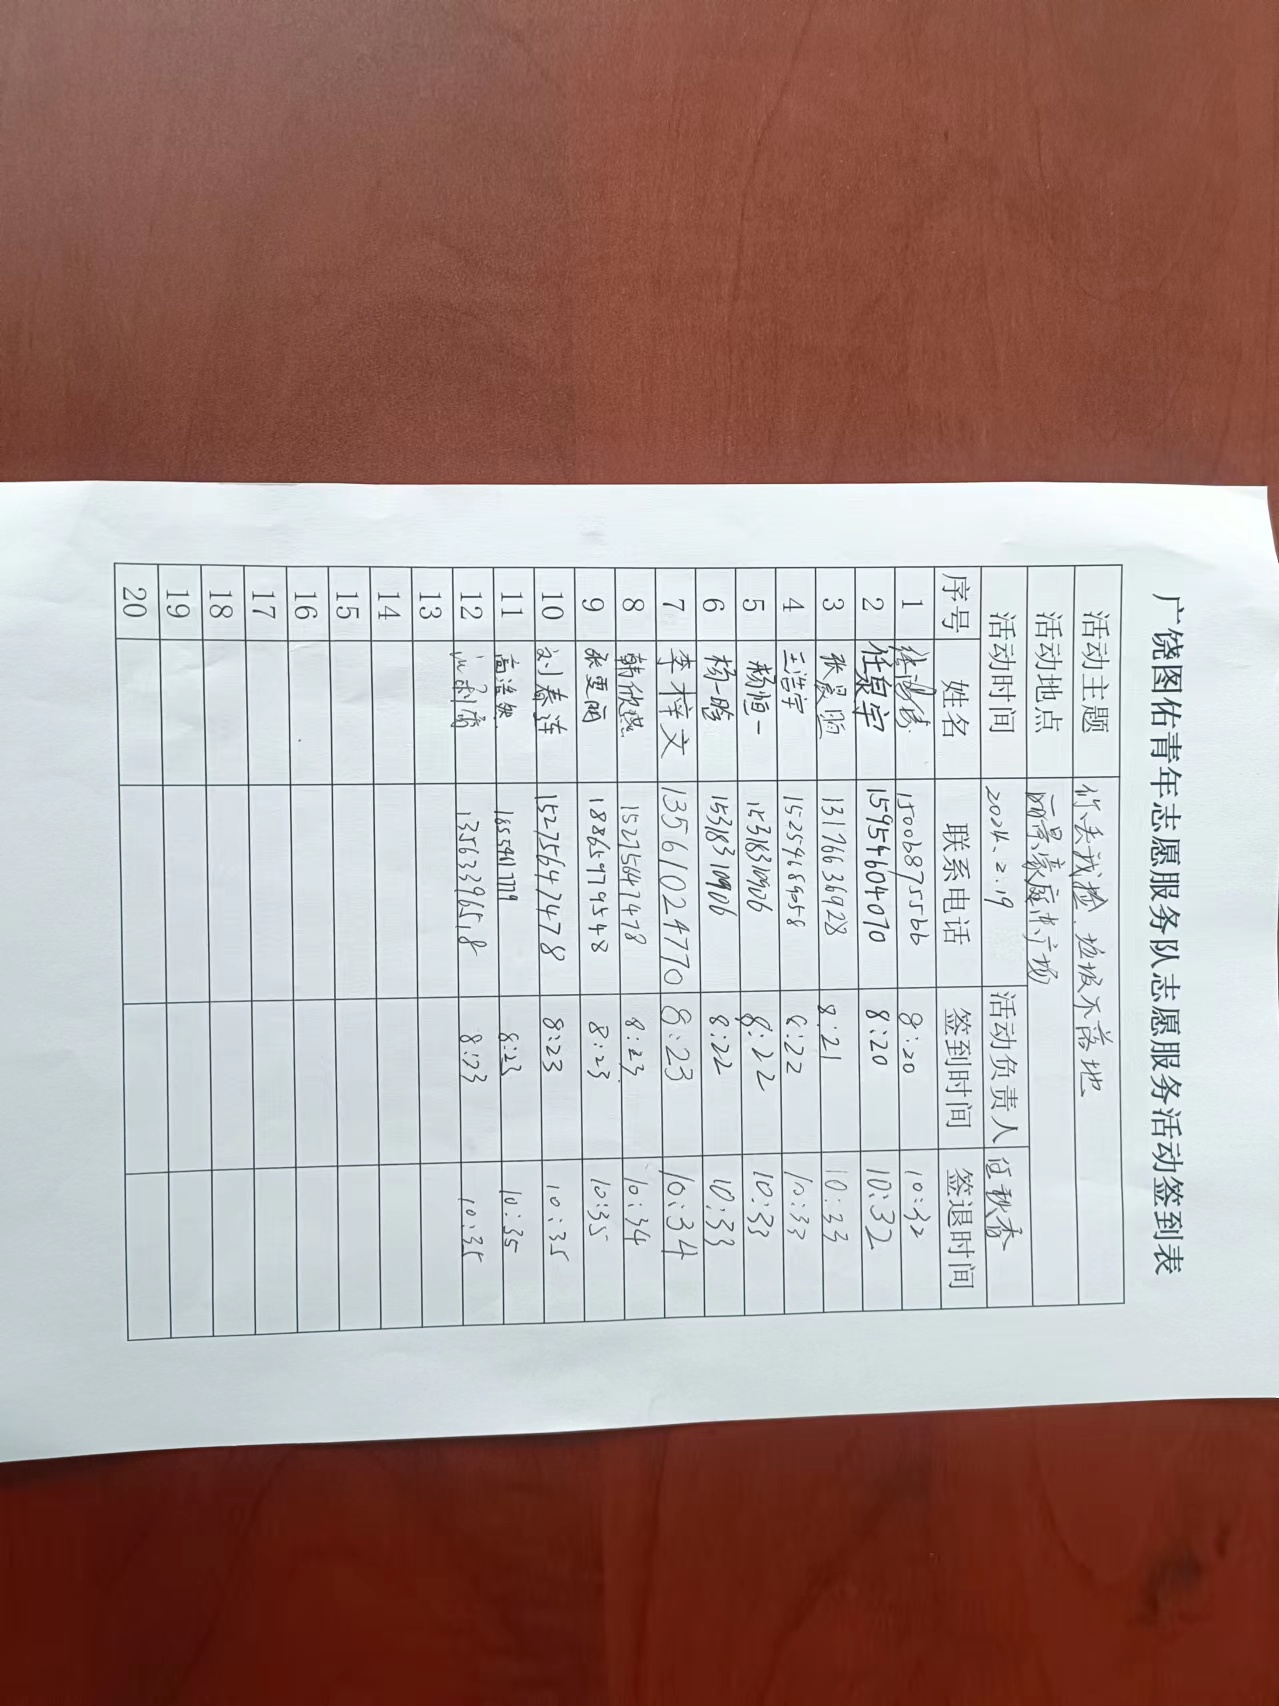 广饶图佑青年志愿服务队志愿服务活动签到表
活动主题 你丢我捡,垃圾不落地
活动地点 丽景豪庭广场
活动时间 2024.2.19 活动负责人 任秋香
序号 姓名 联系电话 签到时间 签退时间
1 15006875566 8:20 10:32
2 任泉宇 15954604070 8:20 10:32
3 张晨煦 13176636928 8:21 10:33
4 王浩宇 15254689058 8:22 10:33
5 杨恒一 15318310906 8:22 10:33
6 杨一晗 15318310906 8:22 10:33
7 李梓文 13561024770 8:23 10:34
8 韩欣燃 15275647478 8:23 10:34
9 张雯雨 18865979548 8:23 10:35
10 刘春莲 15275647478 8:23 10:35
11 高浩然 8:23 10:35
12 13563396518 8:23 10:35
13
14
15
16
17
18
19
20